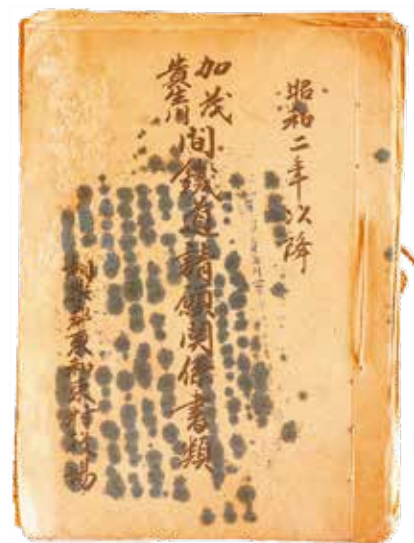 昭和二年以降
加茂
貴生川
間鉄道請願関係書類
相楽郡東和束村役場